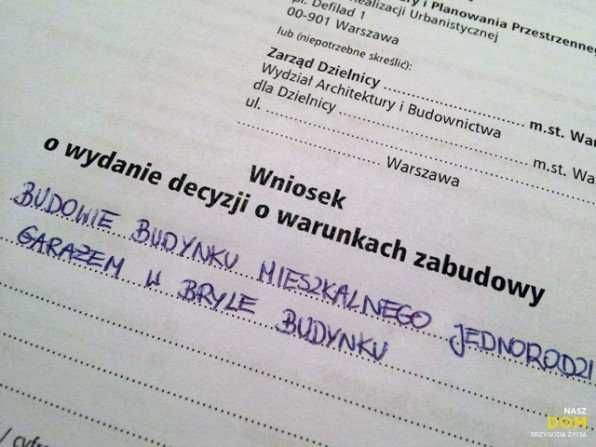 ry i Planowania Przestrzenneg
Realizacji Urbanistycznej
pl. Defilad 1
00-901 Warszawa
lub (niepotrzebne skreślić):
Zarząd Dzielnicy ........................ m.st. War
Wydział Architektury i Budownictwa
dla Dzielnicy ........................ m.st. Wa
ul. ........................
........................ Warszawa
Wniosek
o wydanie decyzji o warunkach zabudowy
BUDOWIE BUDYNKU MIESZKALNEGO JEDNORODZI
GARAŻEM W BRYLE BUDYNKU
NASZ
DOM
PRZYGODA ŻYCIA